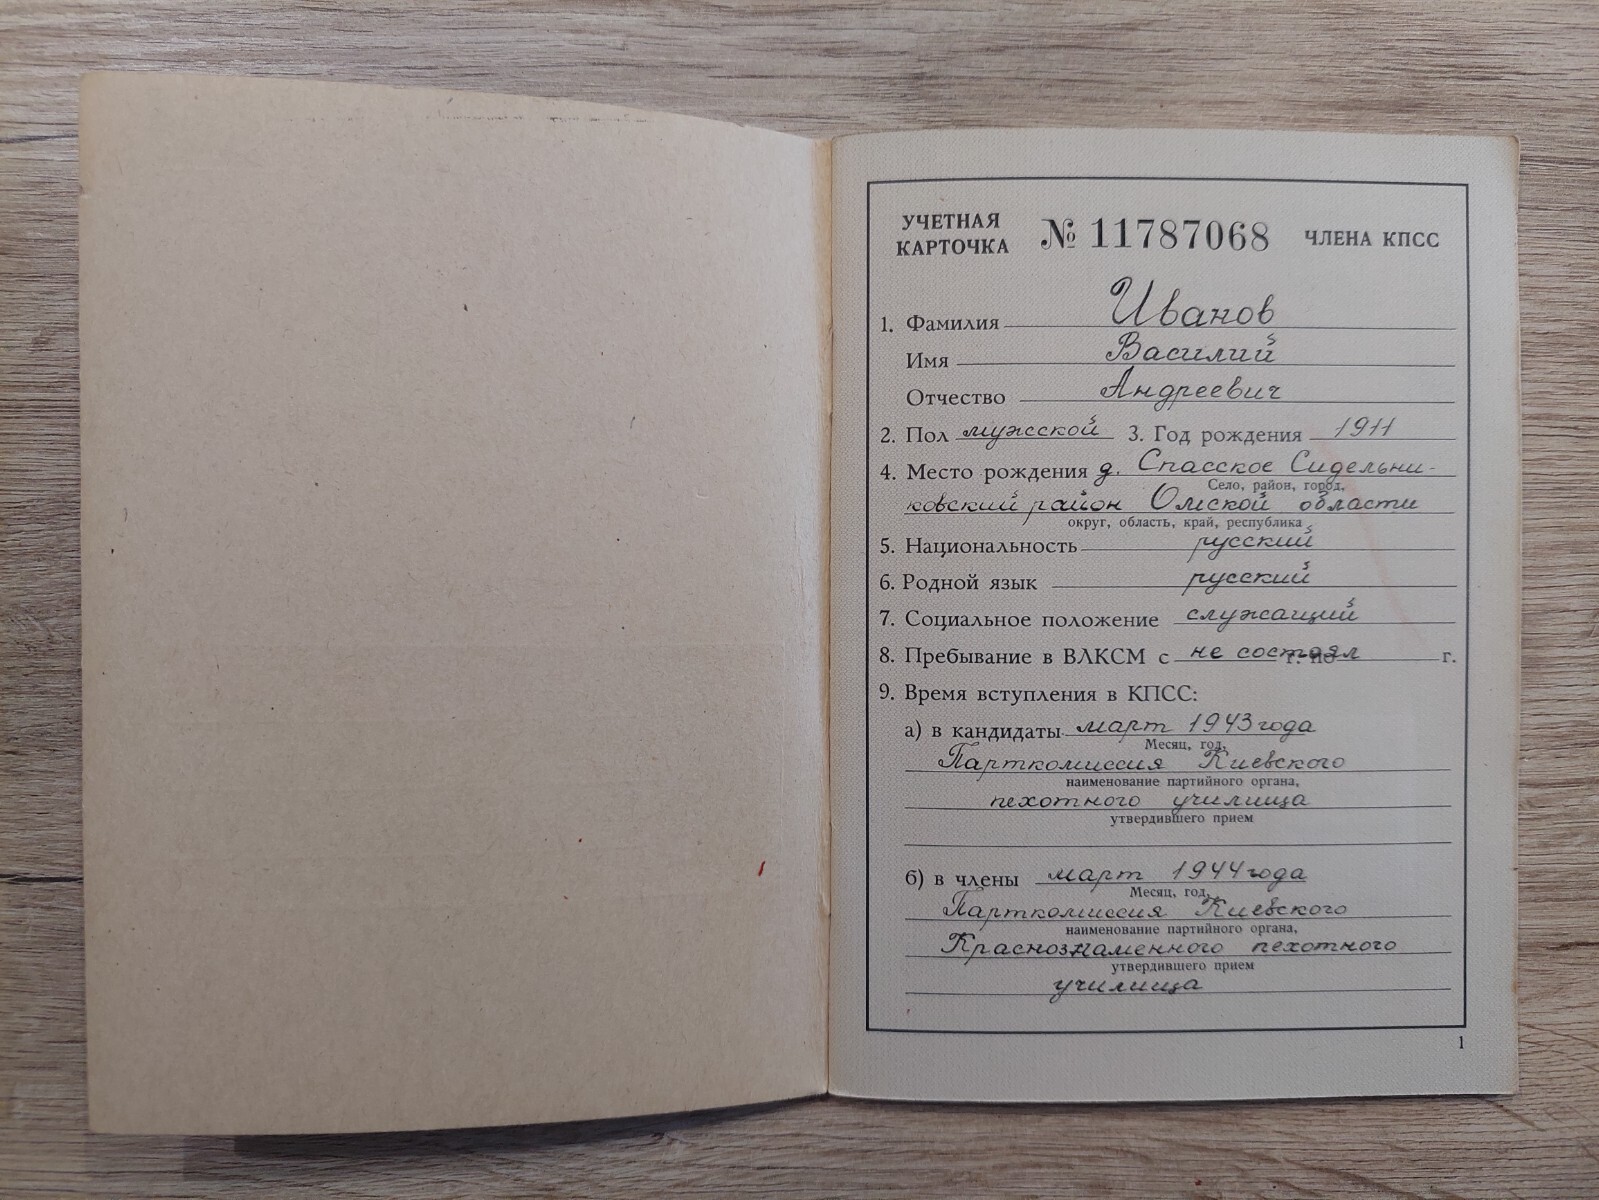 УЧЕТНАЯ КАРТОЧКА № 11787068 ЧЛЕНА КПСС
1. Фамилия Иванов
Имя Василий
Отчество Андреевич
2. Пол мужской 3. Год рождения 1911
4. Место рождения д. Спасское Сидельни-
Село, район, город,
ковский район Омской области
округ, область, край, республика
5. Национальность русский
6. Родной язык русский
7. Социальное положение служащий
8. Пребывание в ВЛКСМ с не состоял г. по г.
9. Время вступления в КПСС:
а) в кандидаты март 1943 года
Месяц, год,
Парткомиссия Киевского
наименование партийного органа,
пехотного училища
утвердившего прием
б) в члены март 1944 года
Месяц, год,
Парткомиссия Киевского
наименование партийного органа,
Краснознаменного пехотного
утвердившего прием
училища
1